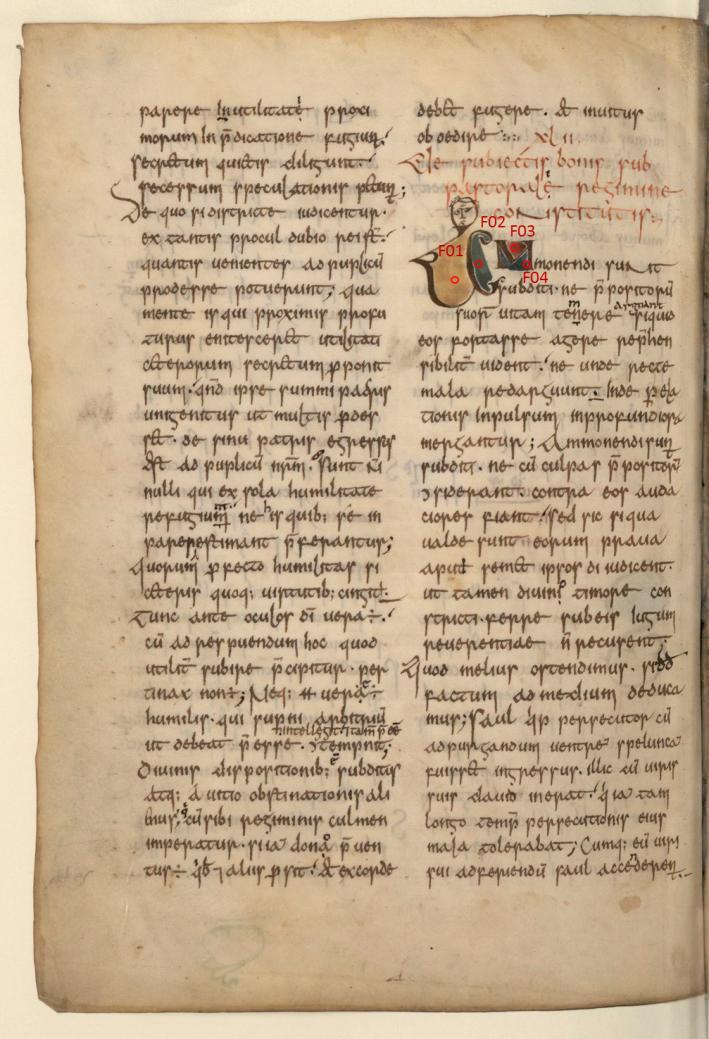 parere In utilitate proxi
morum In p̄dicatione fugiunt
secretum quietis diligunt.
secessum speculationis petunt;
De quo si districte iudicentur.
ex tantis procul dubio rei s̄t.
quantis venientes ad puplicū
prodesse potuerunt; qua
mente is qui proximis profu
turus enitesceret utilitati
ceterorum secretum p̄ponit
suum. qn̄d ipse summi patris
unigenitus ut multis prodes
set. de sinu patris egressus
est ad puplicū nr̄m. Sunt n̄
nulli qui ex sola humilitate
refugium ne his quib; se in
pares estimant p̄ferantur;
quorum profecto humilitas si
ceteris quoq; virtutib; cingit.
tunc ante oculos dī vera ÷.
cū ad respuendum hoc quod
utilit̄ subire p̄cipitur. per
tinax non ÷; Neq; vera ÷
humilis. qui superni arbitriū
ut debeat p̄esse. temnit;
Divinis dispositionib; subditus
atq; a vitio obstinationis ali
enus, cū sibi regiminis culmen
imperatur. si ia donū p̄ven
tus ÷ qb; 7 aliis prosit. et excorde
debet fugere. et invitus
oboedire. XLII.
De subiectis bonis sub
pastorale regimine
constitutis.
F01
F02
F03
F04
Ammonendi sunt
subditi. ne p̄positorū
suor̄ vitam temere
arguant
si quid
eos portasse agere rephen
sibilit̄ vident. ne unde recte
mala redarguunt. Inde p ela
tionis Inpulsum in profundiora
mergantur; Ammonendi sunt
subditi. ne cū culpas p̄positorū
ɔsiderant. contra eos auda
ciores fiant. Sed sic si qua
valde sunt eorum prava
apud semet ipsos di iudicent.
ut tamen divino timore con
stricti. ferre sub eis Iugum
reverentiae n̄ recusent;
Quod melius ostendimus. si dd
factum ad medium deduca
mur; Saul qp persecutor cū
ad purgandum ventrē spelunca
fuisset ingressus. illic cū viris
suis david inerat. qia tam
longo temp̄ persecutionis eius
mala tolerabat; Cumq; eū viri
sui ad feriendū saul accederent